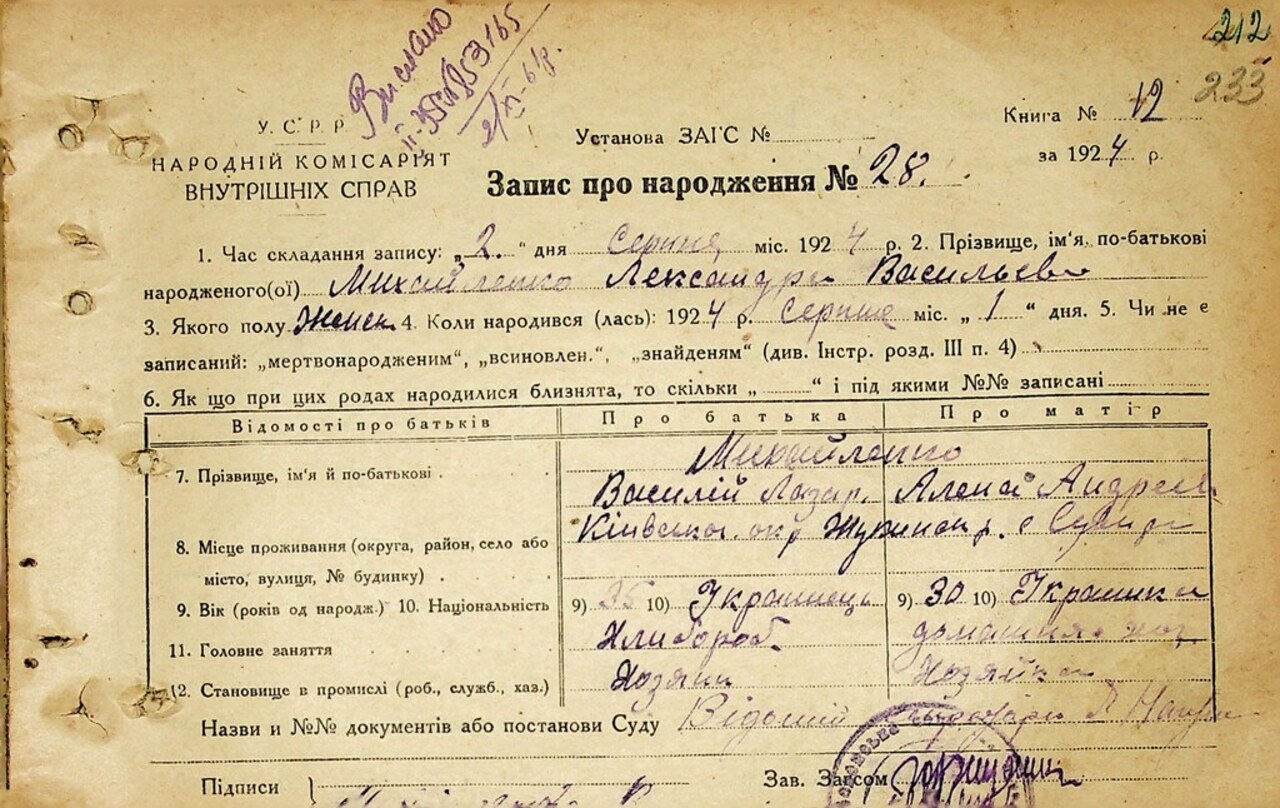 212
233
Выслано
У. С. Р. Р.
НАРОДНІЙ КОМІСАРІЯТ
ВНУТРІШНІХ СПРАВ
Установа ЗАГС №
Книга № 12
за 1924 р.
Запис про народження № 28.
1. Час складання запису: „2.“ дня Серпня міс. 1924 р. 2. Прізвище, ім'я, по-батькові
народженого(ої) Михайленко Лександра Васильевн
3. Якого полу Женск 4. Коли народився (лась): 1924 р. Серпня міс. „1“ дня. 5. Чи не є
записаний: „мертвонародженим“, „всиновлен.“, „знайденям“ (див. Інстр. розд. III п. 4)
6. Як що при цих родах народилися близнята, то скільки „ “ і під якими №№ записані
Відомості про батьків Про батька Про матір
Михайленко
7. Прізвище, ім'я й по-батькові . Василій Лазар. Алена Андреев
Київська окр р. с
8. Місце проживання (округа, район, село або
місто, вулиця, № будинку) .
9. Вік (років од народж.) 10. Національність 9) 35 10) Украинець 9) 30 10) Украинка
11. Головне заняття Хлибороб. домашня хоз
12. Становище в промислі (роб., служб., хаз.) Хозяин Хозяйка
Назви и №№ документів або постанови Суду
Підписи
Зав. Загсом